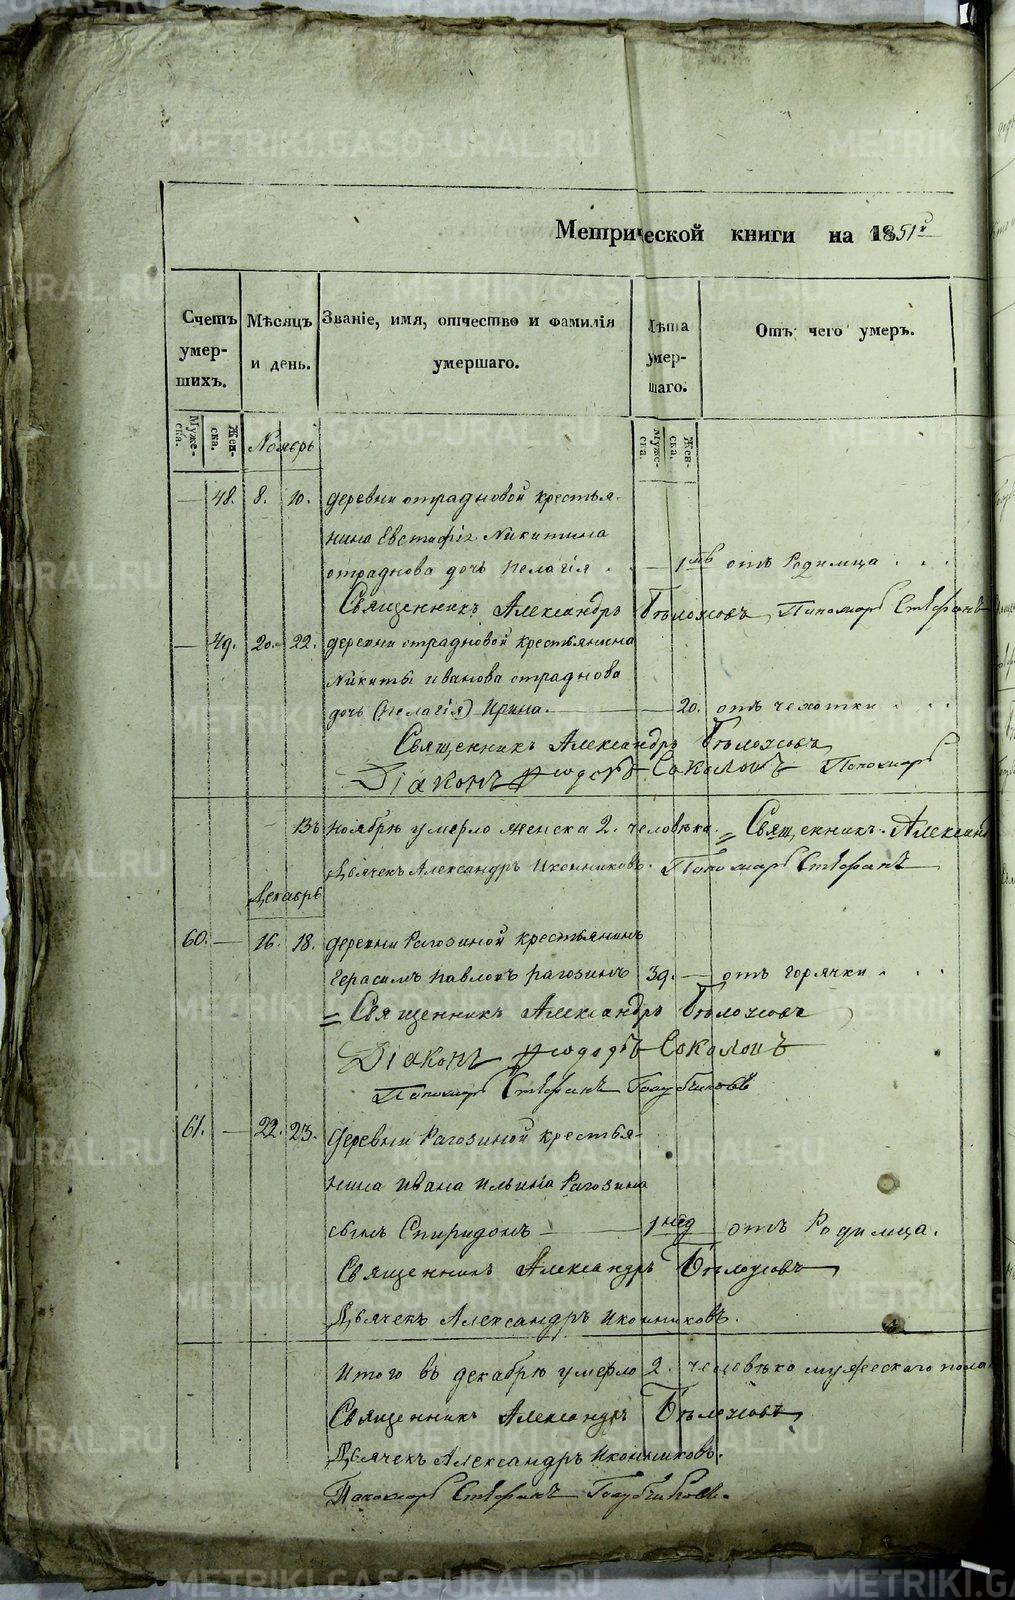 Метрической книги на 1851й
Счетъ умер- шихъ.
Мѣсяцъ и день.
Званіе, имя, отчество и фамилія умершаго.
Лѣта умер- шаго.
Отъ чего умеръ.
Муже- ска. Жен- ска.
Муже- ска. Жен- ска.
Ноябрь
— 48. 8. 10. деревни отрадновой крестья-
нина Евстафія Никитина
отраднова дочь пелагія . — 1 отъ Родимца . . .
Священникъ Александръ Бѣлоусовъ, Пономарь Стефанъ
— 49. 20. 22. деревни отрадновой крестьянина
Никиты иванова отраднова
дочь (пелагія) Ирина. — 20. отъ чахотки . . .
Священникъ Александръ Бѣлоусовъ
Діаконъ Ѳеодоръ Соколовъ Пономарь
Въ ноябрѣ умерло женска 2. человѣка. = Священникъ Александ
Дьячекъ Александръ Иконниковъ. Пономарь Стефанъ
Декабрь
60. — 16. 18. деревни Рагозиной крестьянинъ
Герасимъ павловъ рагозинъ 39. — отъ горячки . . .
= Священникъ Александръ Бѣлоусовъ
Діаконъ Ѳеодоръ Соколовъ
Пономарь Стефанъ Голубчиковъ
61. — 22. 23. Деревни Рагозиной крестья-
нина ивана ильина Рагозина
сынъ Спиридонъ — 1 нед отъ Родимца.
Священникъ Александръ Бѣлоусовъ
Дьячекъ Александръ Иконниковъ.
Итого въ декабрѣ умерло 2. человѣка мужескаго пола
Священникъ Александръ Бѣлоусовъ
Дьячекъ Александръ Иконниковъ.
Пономарь Стефанъ Голубчиковъ.
METRIKI.GASO-URAL.RU